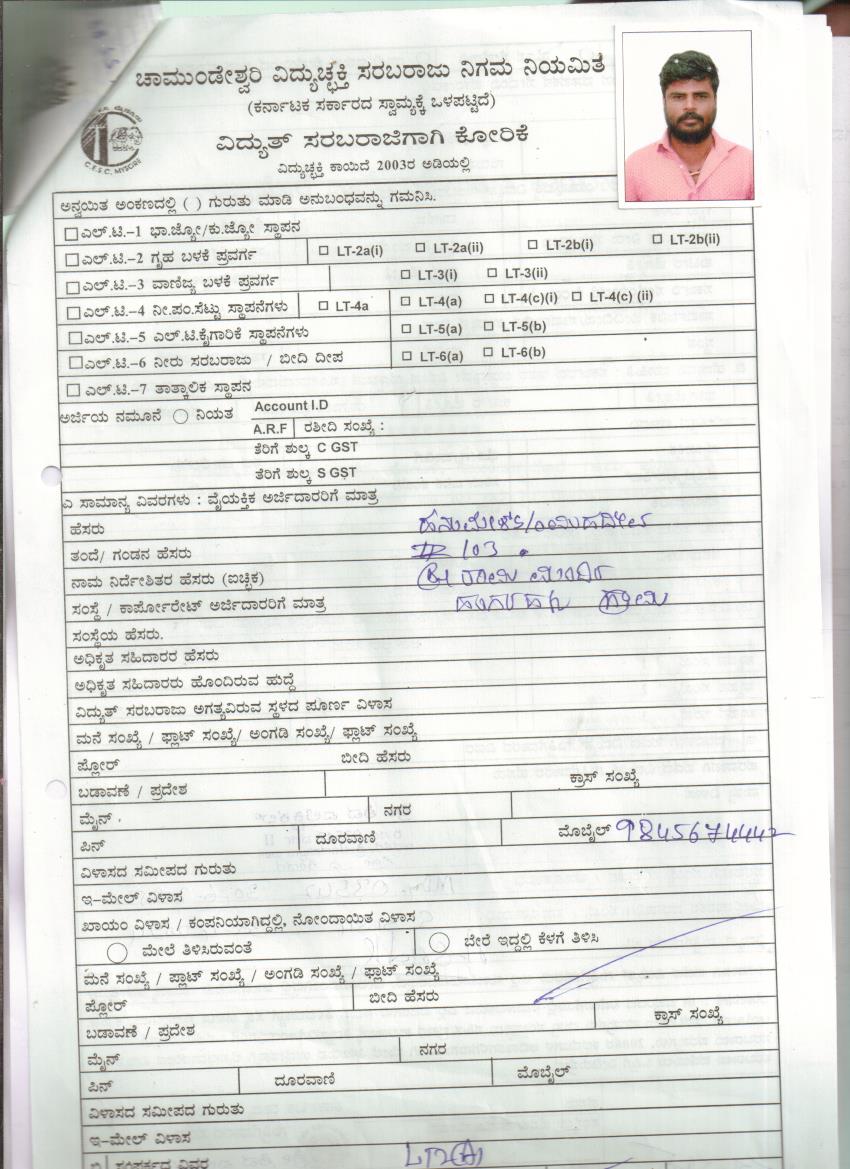 ಚಾಮುಂಡೇಶ್ವರಿ ವಿದ್ಯುಚ್ಛಕ್ತಿ ಸರಬರಾಜು ನಿಗಮ ನಿಯಮಿತ
(ಕರ್ನಾಟಕ ಸರ್ಕಾರದ ಸ್ವಾಮ್ಯಕ್ಕೆ ಒಳಪಟ್ಟಿದೆ)
ವಿದ್ಯುತ್ ಸರಬರಾಜಿಗಾಗಿ ಕೋರಿಕೆ
C.E.S.C, MYSORE
ವಿದ್ಯುಚ್ಛಕ್ತಿ ಕಾಯಿದೆ 2003ರ ಅಡಿಯಲ್ಲಿ
ಅನ್ವಯಿತ ಅಂಕಣದಲ್ಲಿ ( ) ಗುರುತು ಮಾಡಿ ಅನುಬಂಧವನ್ನು ಗಮನಿಸಿ.
ಎಲ್.ಟಿ.–1 ಭಾ.ಜ್ಯೋ/ಕು.ಜ್ಯೋ ಸ್ಥಾಪನ
ಎಲ್.ಟಿ.–2 ಗೃಹ ಬಳಕೆ ಪ್ರವರ್ಗ LT-2a(i) LT-2a(ii) LT-2b(i) LT-2b(ii)
ಎಲ್.ಟಿ.–3 ವಾಣಿಜ್ಯ ಬಳಕೆ ಪ್ರವರ್ಗ LT-3(i) LT-3(ii)
ಎಲ್.ಟಿ.–4 ನೀ.ಪಂ.ಸೆಟ್ಟು ಸ್ಥಾಪನೆಗಳು LT-4a LT-4(a) LT-4(c)(i) LT-4(c) (ii)
ಎಲ್.ಟಿ.–5 ಎಲ್.ಟಿ.ಕೈಗಾರಿಕೆ ಸ್ಥಾಪನೆಗಳು LT-5(a) LT-5(b)
ಎಲ್.ಟಿ.–6 ನೀರು ಸರಬರಾಜು / ಬೀದಿ ದೀಪ LT-6(a) LT-6(b)
ಎಲ್.ಟಿ.–7 ತಾತ್ಕಾಲಿಕ ಸ್ಥಾಪನ
ಅರ್ಜಿಯ ನಮೂನೆ ನಿಯತ Account I.D
A.R.F ರಶೀದಿ ಸಂಖ್ಯೆ :
ತೆರಿಗೆ ಶುಲ್ಕ C GST
ತೆರಿಗೆ ಶುಲ್ಕ S GST
ಎ ಸಾಮಾನ್ಯ ವಿವರಗಳು : ವೈಯಕ್ತಿಕ ಅರ್ಜಿದಾರರಿಗೆ ಮಾತ್ರ
ಹೆಸರು
ತಂದೆ/ ಗಂಡನ ಹೆಸರು # 103
ನಾಮ ನಿರ್ದೇಶಿತರ ಹೆಸರು (ಐಚ್ಛಿಕ)
ಸಂಸ್ಥೆ / ಕಾರ್ಪೋರೇಟ್ ಅರ್ಜಿದಾರರಿಗೆ ಮಾತ್ರ
ಸಂಸ್ಥೆಯ ಹೆಸರು.
ಅಧಿಕೃತ ಸಹಿದಾರರ ಹೆಸರು
ಅಧಿಕೃತ ಸಹಿದಾರರು ಹೊಂದಿರುವ ಹುದ್ದೆ
ವಿದ್ಯುತ್ ಸರಬರಾಜು ಅಗತ್ಯವಿರುವ ಸ್ಥಳದ ಪೂರ್ಣ ವಿಳಾಸ
ಮನೆ ಸಂಖ್ಯೆ / ಫ್ಲಾಟ್ ಸಂಖ್ಯೆ/ ಅಂಗಡಿ ಸಂಖ್ಯೆ/ ಫ್ಲಾಟ್ ಸಂಖ್ಯೆ
ಫ್ಲೋರ್ ಬೀದಿ ಹೆಸರು
ಬಡಾವಣೆ / ಪ್ರದೇಶ ಕ್ರಾಸ್ ಸಂಖ್ಯೆ
ಮೈನ್ ನಗರ
ಪಿನ್ ದೂರವಾಣಿ ಮೊಬೈಲ್ 9845674442
ವಿಳಾಸದ ಸಮೀಪದ ಗುರುತು
ಇ–ಮೇಲ್ ವಿಳಾಸ
ಖಾಯಂ ವಿಳಾಸ / ಕಂಪನಿಯಾಗಿದ್ದಲ್ಲಿ, ನೋಂದಾಯಿತ ವಿಳಾಸ
ಮೇಲೆ ತಿಳಿಸಿರುವಂತೆ ಬೇರೆ ಇದ್ದಲ್ಲಿ ಕೆಳಗೆ ತಿಳಿಸಿ
ಮನೆ ಸಂಖ್ಯೆ / ಪ್ಲಾಟ್ ಸಂಖ್ಯೆ / ಅಂಗಡಿ ಸಂಖ್ಯೆ / ಫ್ಲಾಟ್ ಸಂಖ್ಯೆ
ಫ್ಲೋರ್ ಬೀದಿ ಹೆಸರು
ಬಡಾವಣೆ / ಪ್ರದೇಶ ಕ್ರಾಸ್ ಸಂಖ್ಯೆ
ಮೈನ್ ನಗರ
ಪಿನ್ ದೂರವಾಣಿ ಮೊಬೈಲ್
ವಿಳಾಸದ ಸಮೀಪದ ಗುರುತು
ಇ–ಮೇಲ್ ವಿಳಾಸ
ಸಂಪರ್ಕದ ವಿವರ